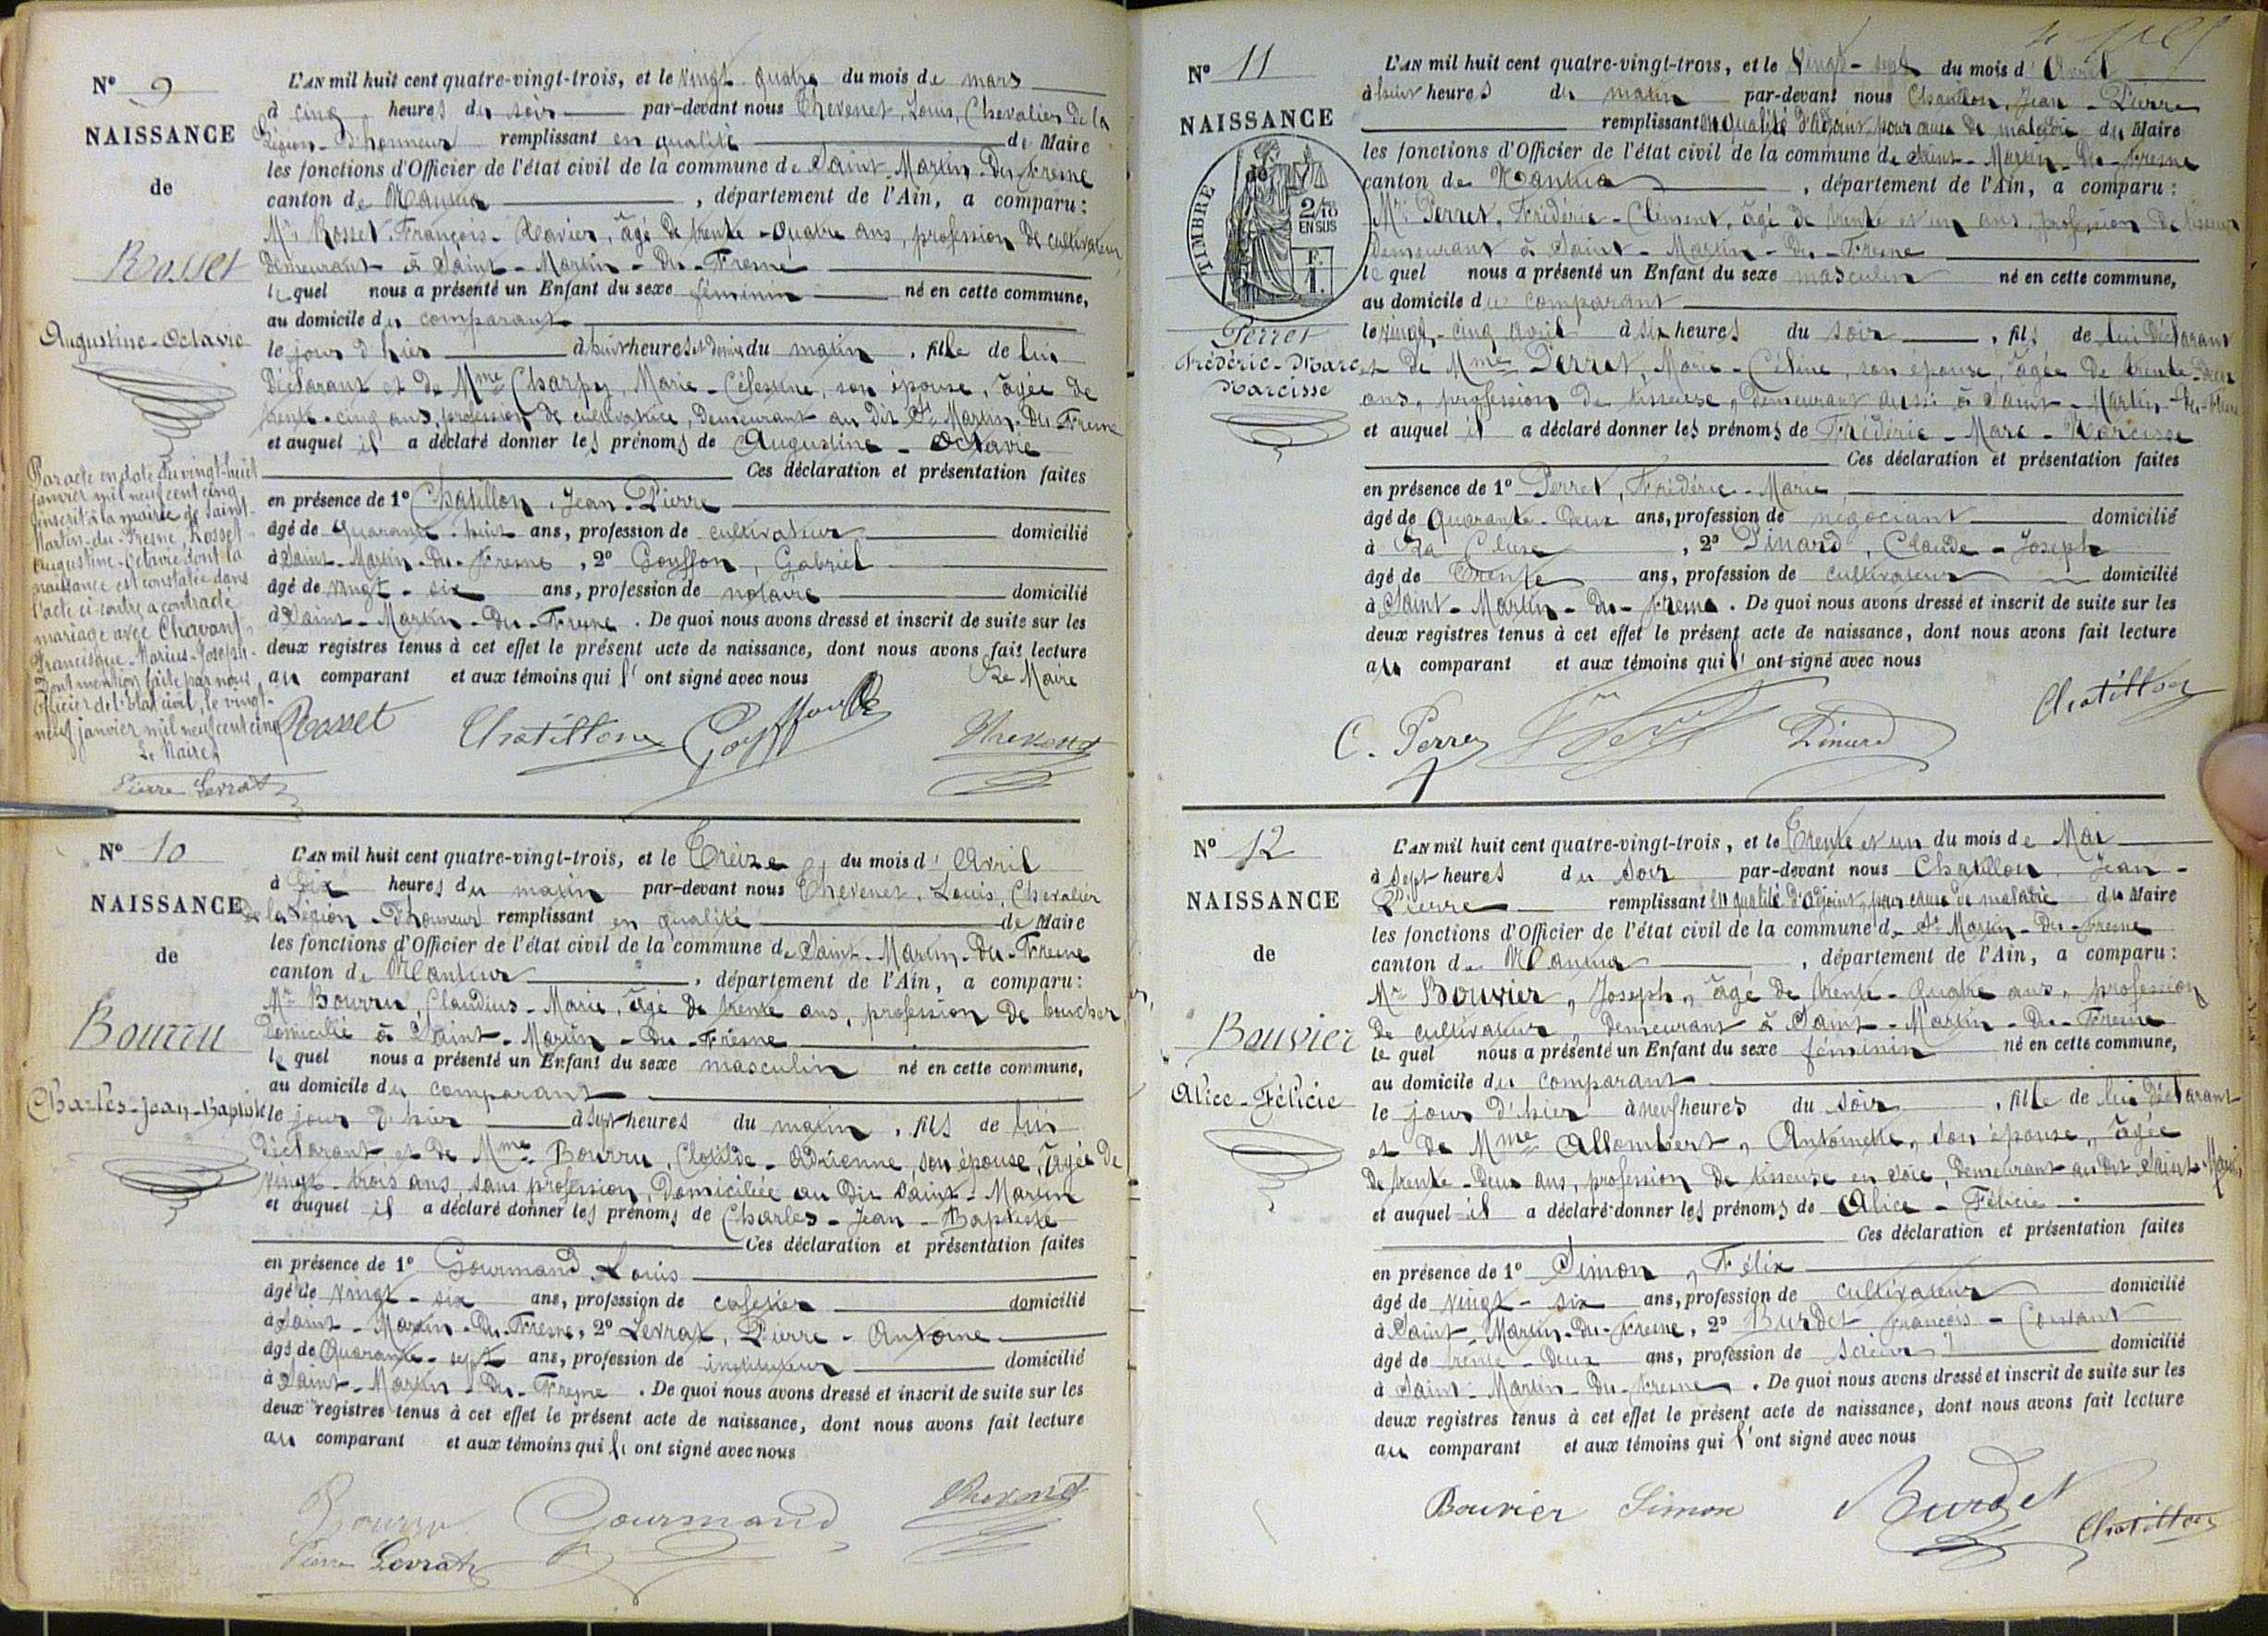 N° 9
NAISSANCE
de
Rosset
Augustine-Octavie
Par acte en date du vingt-huit
janvier mil neuf cent cinq
inscrit à la mairie de Saint-
Martin-du-Fresne, Rosset
Augustine-Octavie dont la
naissance est constatée dans
l'acte ci-contre a contracté
mariage avec Chavant
Francisque-Marius-Joseph.
Dont mention faite par nous
Officier de l'état civil, le vingt-
neuf janvier mil neuf cent cinq
Le Maire
Pierre Levrat
L'AN mil huit cent quatre-vingt-trois, et le vingt quatre du mois de mars
à cinq heures du soir par-devant nous Thevenet, Louis, Chevalier de la
Légion-d'honneur remplissant en qualité de Maire
les fonctions d'Officier de l'état civil de la commune de Saint-Martin-Du-Fresne
canton de Nantua, département de l'Ain, a comparu:
Mr Rosset, François-Xavier, âgé de trente-quatre ans, profession de cultivateur,
demeurant à Saint-Martin-Du-Fresne
le quel nous a présenté un Enfant du sexe féminin né en cette commune,
au domicile du comparant
le jour d'hier à huit heures et demie du matin, fille de lui
déclarant et de Mme Charpy, Marie-Célestine, son épouse, âgée de
trente-cinq ans, profession de cultivatrice, demeurant au dit St Martin-Du-Fresne
et auquel il a déclaré donner les prénoms de Augustine-Octavie
Ces déclaration et présentation faites
en présence de 1° Chatillon, Jean-Pierre
âgé de quarante-huit ans, profession de cultivateur domicilié
à Saint-Martin-Du-Fresne, 2° Gouffon, Gabriel
âgé de vingt-six ans, profession de notaire domicilié
à Saint-Martin-Du-Fresne. De quoi nous avons dressé et inscrit de suite sur les
deux registres tenus à cet effet le présent acte de naissance, dont nous avons fait lecture
au comparant et aux témoins qui l'ont signé avec nous Le Maire
Rosset Chatillon Gouffon Thevenet
N° 10
NAISSANCE
de
Bourru
Charles-Jean-Baptiste
L'AN mil huit cent quatre-vingt-trois, et le Treize du mois d'Avril
à six heures du matin par-devant nous Thevenet, Louis, Chevalier
de la Légion-d'honneur remplissant en qualité de Maire
les fonctions d'Officier de l'état civil de la commune de Saint-Martin-Du-Fresne
canton de Nantua, département de l'Ain, a comparu:
Mr Bourru, Claudius-Marie, âgé de trente ans, profession de boucher,
domicilié à Saint-Martin-Du-Fresne
le quel nous a présenté un Enfant du sexe masculin né en cette commune,
au domicile du comparant
le jour d'hier à sept heures du matin, fils de lui
déclarant et de Mme Bourru, Clotilde-Adrienne, son épouse, âgée de
vingt-trois ans, sans profession, domiciliée au dit Saint-Martin
et auquel il a déclaré donner les prénoms de Charles-Jean-Baptiste
Ces déclaration et présentation faites
en présence de 1° Gourmand Louis
âgé de vingt-six ans, profession de cafetier domicilié
à Saint-Martin-Du-Fresne, 2° Levrat, Pierre-Antoine
âgé de Quarante-sept ans, profession de instituteur domicilié
à Saint-Martin-Du-Fresne. De quoi nous avons dressé et inscrit de suite sur les
deux registres tenus à cet effet le présent acte de naissance, dont nous avons fait lecture
au comparant et aux témoins qui l'ont signé avec nous
Bourru Gourmand Thevenet
Pierre Levrat
N° 11
NAISSANCE
de
TIMBRE
2/10
EN SUS
F.
1.
Perret
Frédéric-Marc
Narcisse
L'AN mil huit cent quatre-vingt-trois, et le Vingt-sept du mois d'Avril
à huit heures du matin par-devant nous Chatillon, Jean-Pierre
remplissant en qualité d'adjoint, pour cause de maladie du Maire
les fonctions d'Officier de l'état civil de la commune de Saint-Martin-Du-Fresne
canton de Nantua, département de l'Ain, a comparu:
Mr Perret, Frédéric-Clément, âgé de trente et un ans, profession de tisseur
demeurant à Saint-Martin-Du-Fresne
le quel nous a présenté un Enfant du sexe masculin né en cette commune,
au domicile du comparant
le vingt-cinq avril à six heures du soir, fils de lui déclarant
et de Mme Perret, Marie-Céline, son épouse, âgée de trente-deux
ans, profession de tisseuse, demeurant aussi à Saint-Martin-du-Fresne
et auquel il a déclaré donner les prénoms de Frédéric-Marc-Narcisse
Ces déclaration et présentation faites
en présence de 1° Perret, Frédéric-Marie,
âgé de Quarante-deux ans, profession de négociant domicilié
à La Cluse, 2° Pinard, Claude-Joseph
âgé de Trente ans, profession de cultivateur domicilié
à Saint-Martin-Du-Fresne. De quoi nous avons dressé et inscrit de suite sur les
deux registres tenus à cet effet le présent acte de naissance, dont nous avons fait lecture
au comparant et aux témoins qui l'ont signé avec nous
C. Perret Pinard Chatillon
N° 12
NAISSANCE
de
Bouvier
Alice-Félicie
L'AN mil huit cent quatre-vingt-trois, et le Trente et un du mois de Mai
à sept heures du soir par-devant nous Chatillon, Jean-
Pierre remplissant en qualité d'adjoint, pour cause de maladie du Maire
les fonctions d'Officier de l'état civil de la commune de St Martin-Du-Fresne
canton de Nantua, département de l'Ain, a comparu:
Mr Bouvier, Joseph, âgé de trente-quatre ans, profession
de cultivateur, demeurant à Saint-Martin-Du-Fresne
le quel nous a présenté un Enfant du sexe féminin né en cette commune,
au domicile du comparant
le jour d'hier à neuf heures du soir, fille de lui déclarant
et de Mme Allombert, Antoinette, son épouse, âgée
de trente-deux ans, profession de tisseuse en soie, demeurant au dit Saint-Martin,
et auquel il a déclaré donner les prénoms de Alice-Félicie.
Ces déclaration et présentation faites
en présence de 1° Simon, Félix
âgé de vingt-six ans, profession de cultivateur domicilié
à Saint-Martin-Du-Fresne, 2° Burdet François-Constant
âgé de trente-deux ans, profession de scieur domicilié
à Saint-Martin-Du-Fresne. De quoi nous avons dressé et inscrit de suite sur les
deux registres tenus à cet effet le présent acte de naissance, dont nous avons fait lecture
au comparant et aux témoins qui l'ont signé avec nous
Bouvier Simon Burdet Chatillon